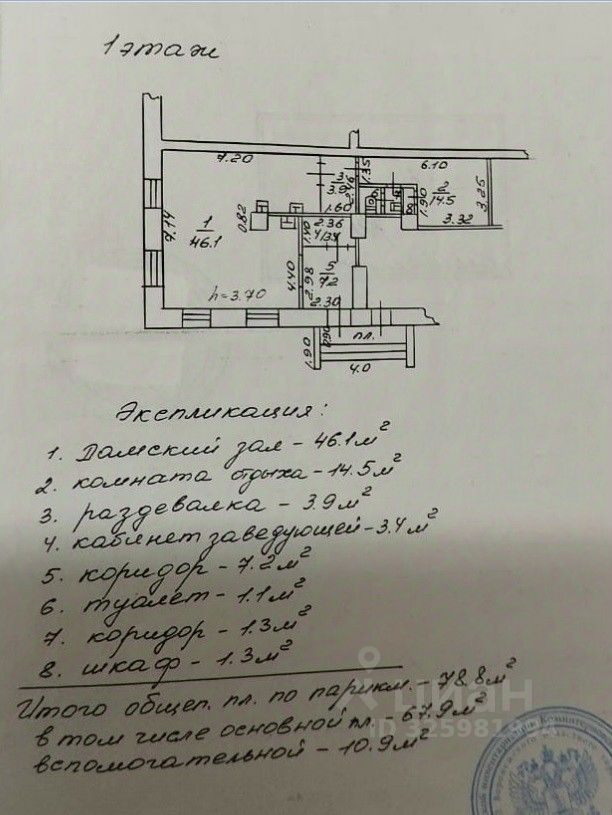 1 этаж
7.20
6.10
3
3.9
2.46
1.35
1.60
2
14.5
3.25
1.90
3.32
6
8
7.14
1
46.1
0.82
2.36
1.40
4.40
5
7.2
2.98
2.30
h=3.70
пл.
1.90
0.90
4.0
Экспликация:
1. Дамский зал - 46.1 м²
2. комната отдыха - 14.5 м²
3. раздевалка - 3.9 м²
4. кабинет заведующей - 3.4 м²
5. коридор - 7.2 м²
6. туалет - 1.1 м²
7. коридор - 1.3 м²
8. шкаф - 1.3 м²
Итого общеп. пл. по парикм. - 78.8 м²
в том числе основной пл. - 67.9 м²
вспомогательной - 10.9 м²
циан